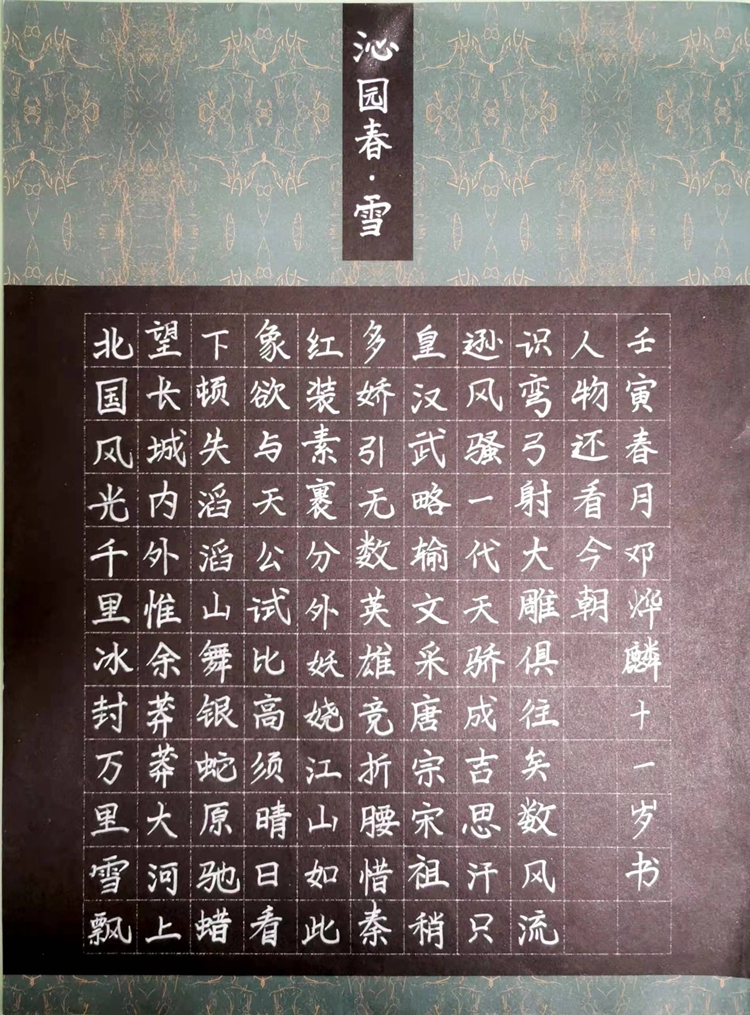 沁园春·雪
北国风光千里冰封万里雪飘
望长城内外惟余莽莽大河上
下顿失滔滔山舞银蛇原驰蜡
象欲与天公试比高须晴日看
红装素裹分外妖娆江山如此
多娇引无数英雄竞折腰惜秦
皇汉武略输文采唐宗宋祖稍
逊风骚一代天骄成吉思汗只
识弯弓射大雕俱往矣数风流
人物还看今朝
壬寅春月邓烨麟十一岁书